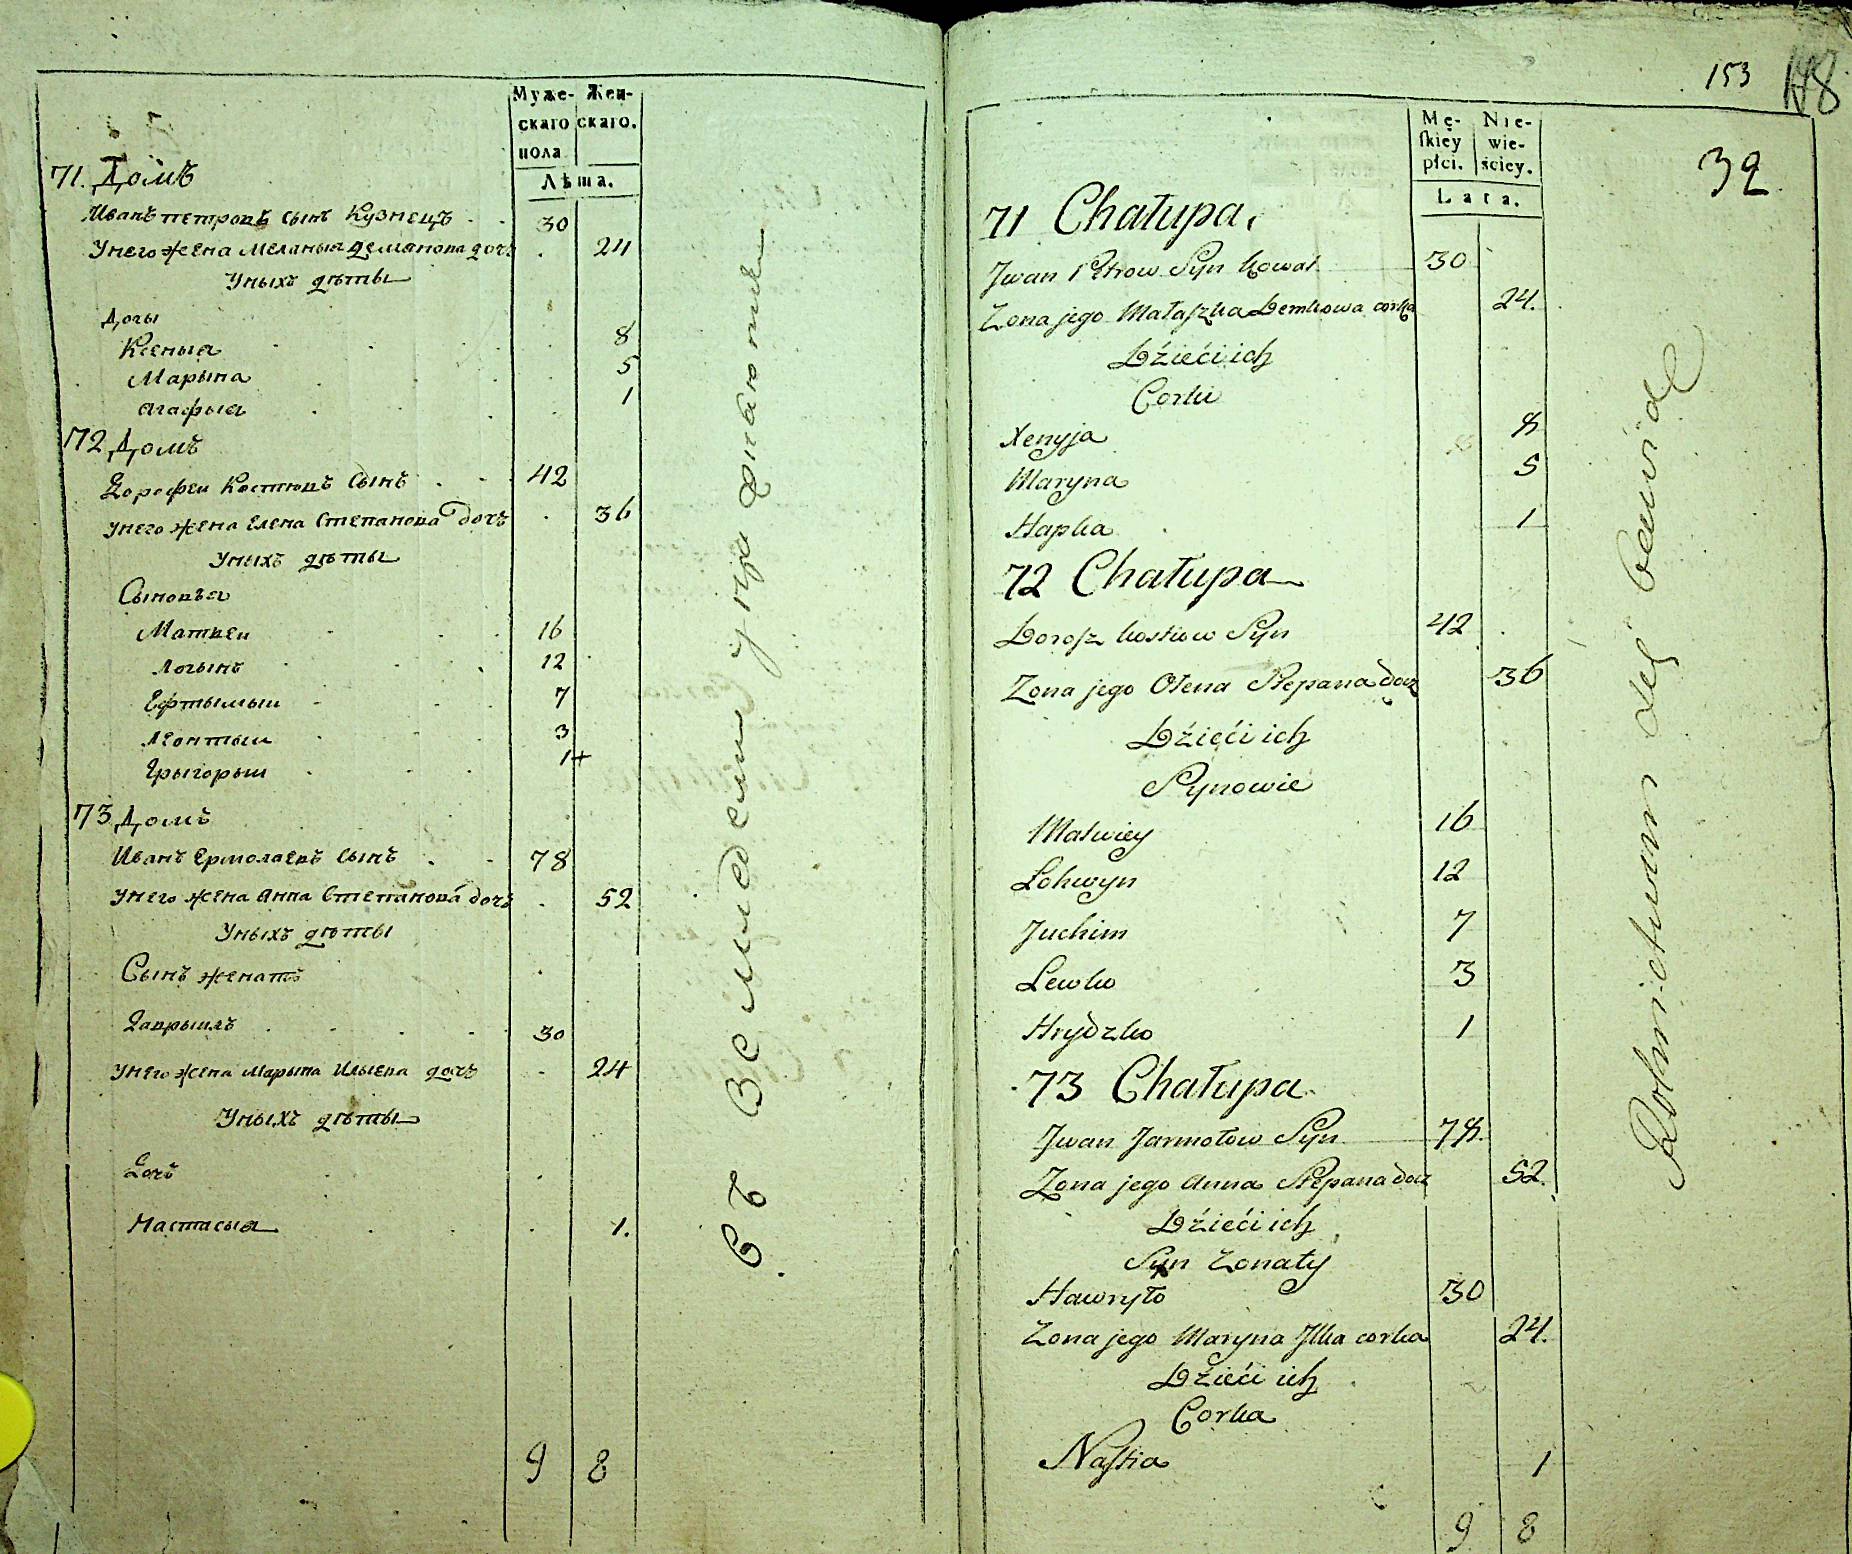 Муже- Жен-
скаго скаго.
пола
Лѣта.
71. Домъ
Иванъ петровъ сынъ Кузнецъ 30
Унего жена Меланыя Демянова дочъ 24
Уныхъ дѣты
Дочы
Ксеныя 8
Марына 5
Агафыя 1
72 Домъ
Дорофеи Костювъ Сынъ 42
унего жена Елена Степанова дочъ 36
Уныхъ дѣты
Сыновья
Матвеи 16
Логынъ 12
Ефтымыи 7
Леонтыи 3
Грыгорыи 1+
73 Домъ
Иванъ Ермолаевъ Сынъ 78
унего жена Анна Степанова дочъ 52
Уныхъ дѣты
Сынъ женатъ
Гаврыилъ 30
унего жена Марына Ильева дочъ 24
Уныхъ дѣты
Дочъ
Настасыя 1.
9 8
153 178
32
Mę- Nie-
skiey wie-
płci. ściey.
Lata.
71 Chałupa.
Jwan Petrow Syn Kowal 30
Zona jego Małaszka Demkowa corka 24.
Dźieći ich
Corki
Xenyja 8
Maryna 5
Hapka 1
72 Chałupa
Dorosz Kostiow Syn 42
Zona jego Ołena Stepana docz 36
Dźieći ich
Synowie
Matwiey 16
Lohwyn 12
Juchim 7
Lewko 3
Hrydzko 1
73 Chałupa
Jwan Jarmołow Syn 78
Zona jego Anna Stepana docz 52.
Dźieći ich
Syn Zonaty
Hawryło 30
Zona jego Maryna Jlka corka 24.
Dźieći ich
Corka
Nastia 1
9 8